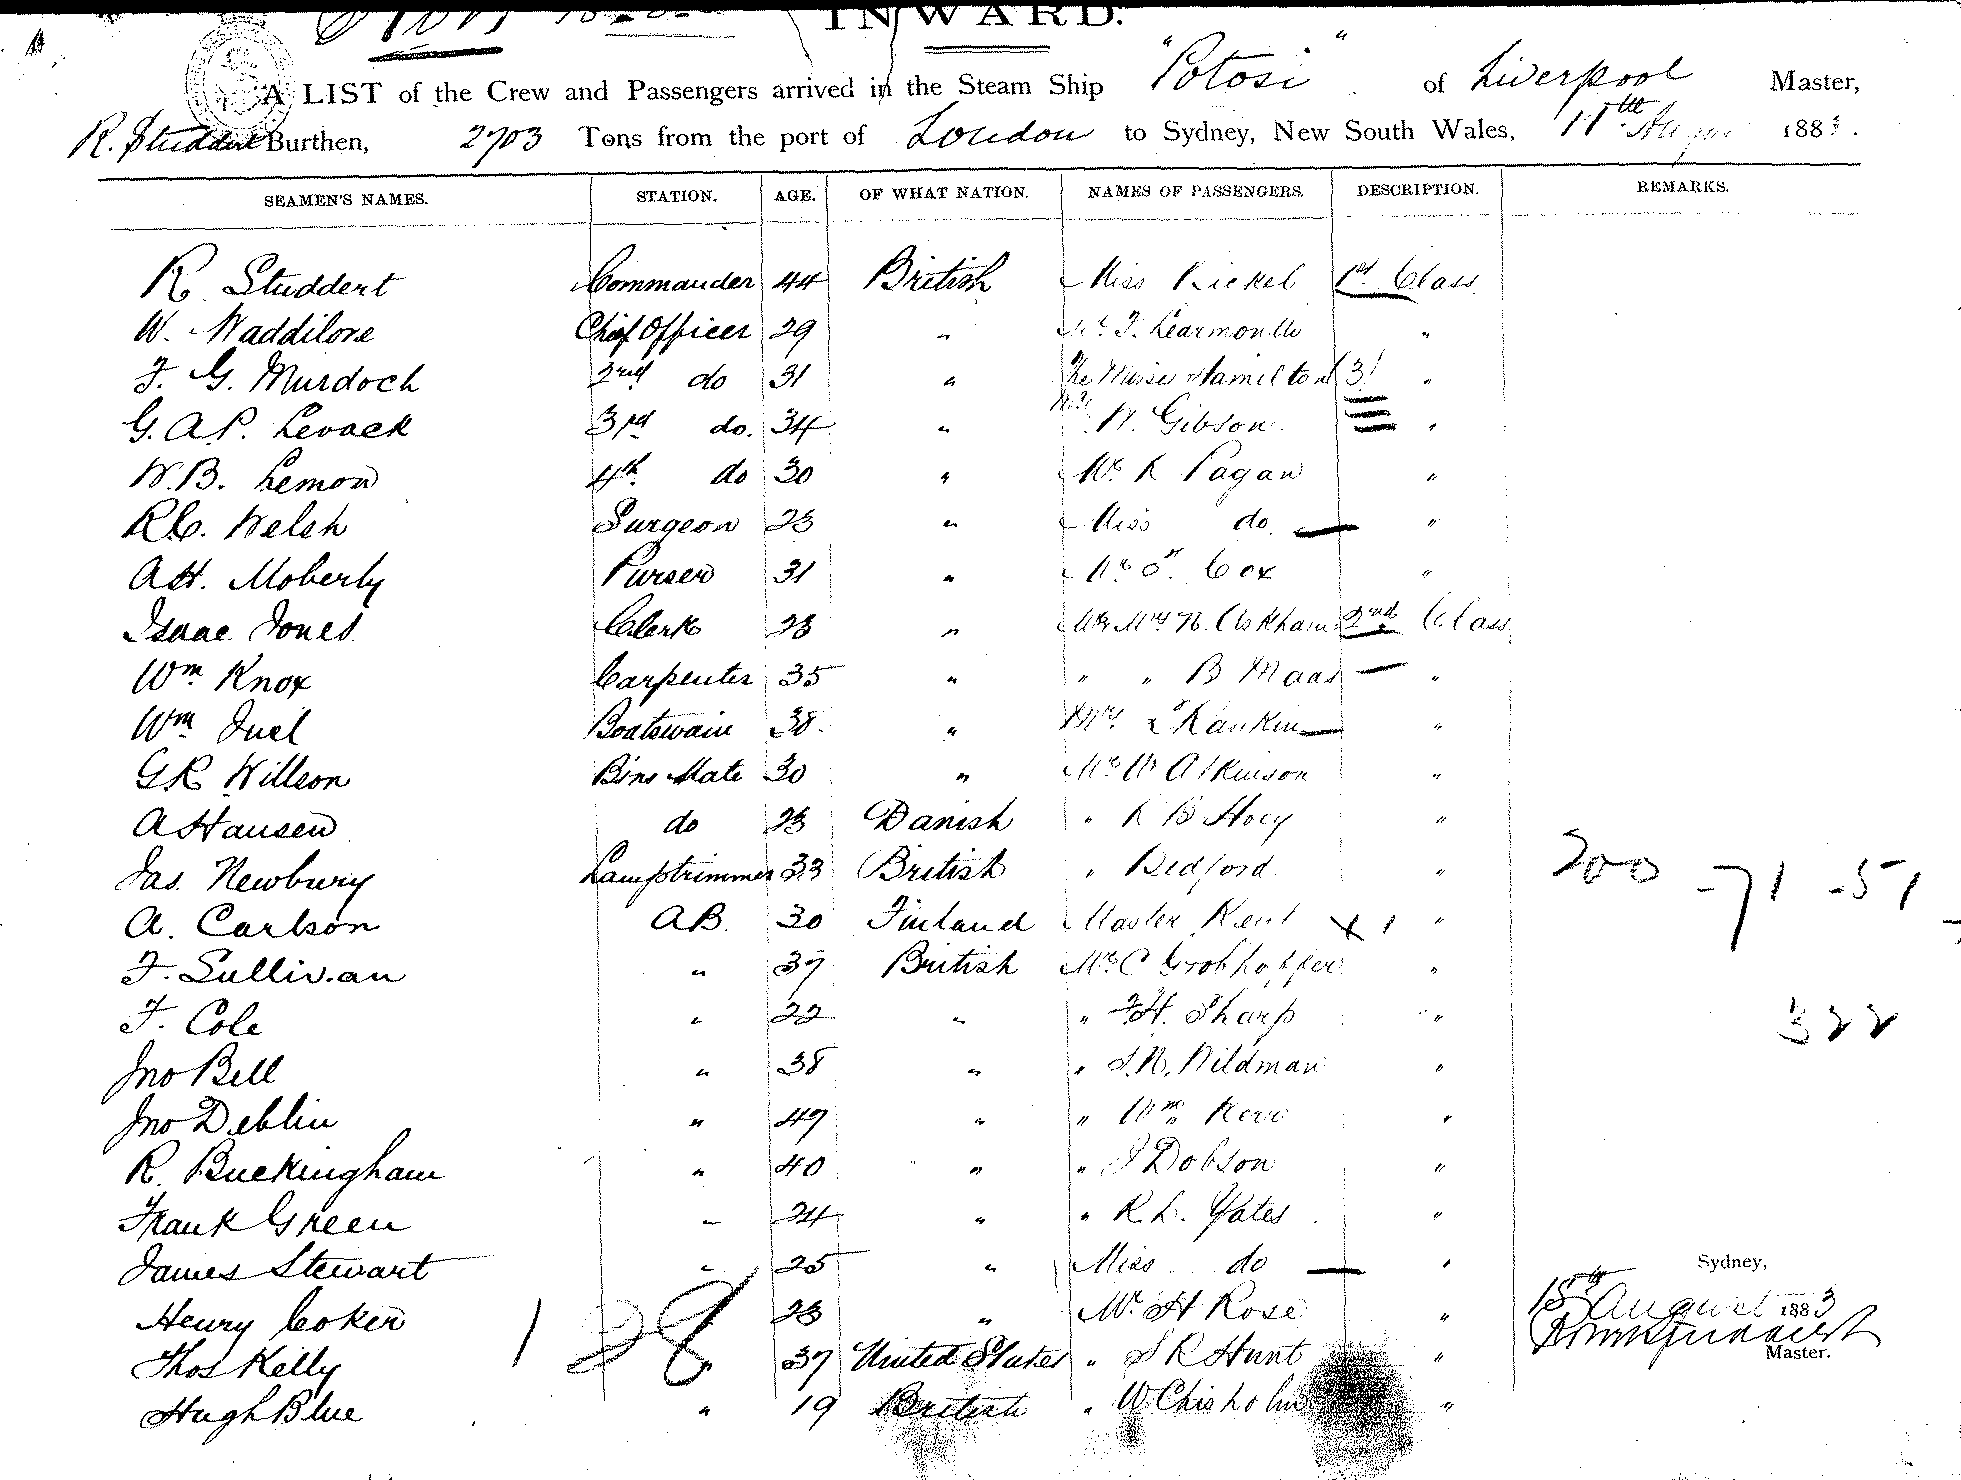 INWARD.
A LIST of the Crew and Passengers arrived in the Steam Ship "Potosi" of Liverpool Master,
R. Studdert Burthen, 2703 Tons from the port of London to Sydney, New South Wales, 188
SEAMEN'S NAMES. STATION. AGE. OF WHAT NATION. NAMES OF PASSENGERS. DESCRIPTION. REMARKS.
R Studdert Commander 44 British Miss 1st Class
W. Waddilove Chief Officer 29 " Learmonth "
F. G. Murdoch 2nd do 31 " The Misses Hamilton 3 "
G. A. P. Levack 3rd do. 34 " Gibson "
W. B. Lemon 4th do 30 " Mr R Pagan "
R C. Welsh Surgeon 23 " Miss do. "
A H. Moberly Purser 31 " Cox "
Isaac Jones Clerk 23 " 2nd Class
Wm Knox Carpenter 35 " " " B Maas "
Wm Juel Boatswain 38 " Rankin "
G R Willson Bsns Mate 30 " Mr W Atkinson "
A Hansen do 23 Danish " R B Hoey "
Jas. Newbury Lamptrimmer 33 British " Bedford "
200 - 71 - 51
A. Carlson AB. 30 Finland Master Kent x 1 "
F. Sullivan " 37 British Mr C "
F. Cole " 22 " " F H. Sharp "
322
Jno Bell " 38 " " Wildman "
Jno Deblin " 49 " " Wm Kerr "
R. Buckingham " 40 " " J Dobson "
Frank Green " 24 " " R L. Yates "
James Stewart " 25 " Miss do "
Sydney,
Henry Coker 23 " Mr H Rose "
18th August 1883
1 28
Thos Kelly " 37 United States " S R Hunt "
Master.
Hugh Blue " 19 British " W Chisholm "